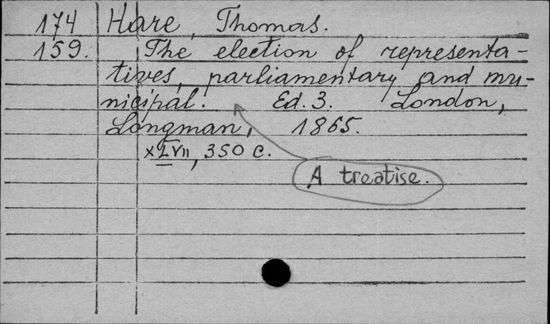 174 Hare, Thomas.
159. The election of representa-
tives, parliamentary and mu-
nicipal. Ed. 3. London,
Longman, 1865.
xLVII, 350 c.
A treatise.